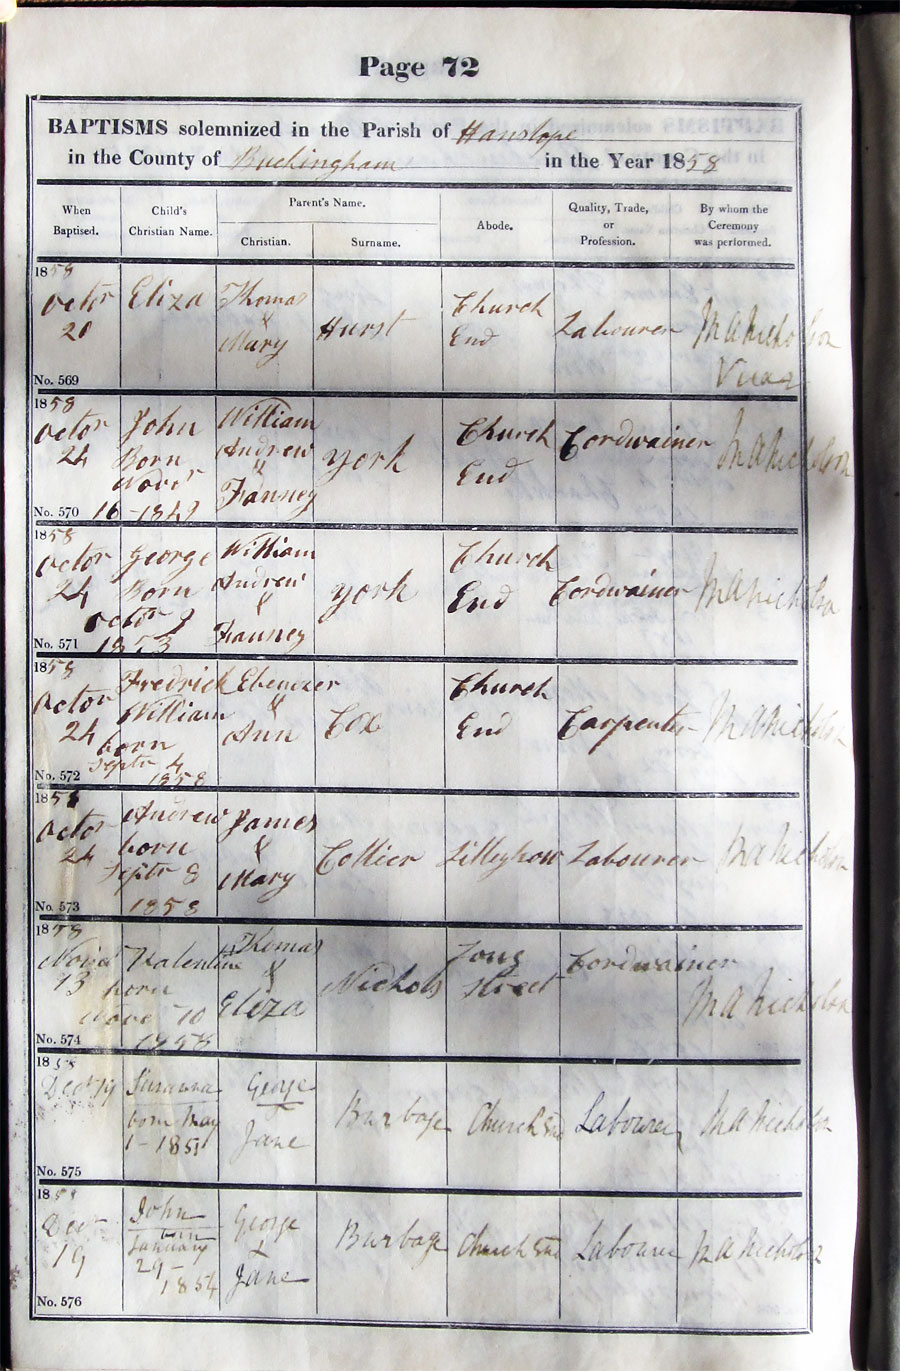 Page 72
BAPTISMS solemnized in the Parish of Hanslope
in the County of Buckingham in the Year 1858
When Baptised.
Child's Christian Name.
Parent's Name.
Christian.
Surname.
Abode.
Quality, Trade, or Profession.
By whom the Ceremony was performed.
1858
Octor
20
No. 569
Eliza
Thomas
&
Mary
Hurst
Church
End
Labourer
M A Nicholson
Vicar
1858
Octor
24
No. 570
John
Born
Novr
16 - 1849
William
Andrew
&
Fanney
York
Church
End
Cordwainer
M A Nicholson
1858
Octor
24
No. 571
George
Born
Octor 9
1853
William
Andrew
&
Fanney
York
Church
End
Cordwainer
M A Nicholson
1858
Octor
24
No. 572
Fredrick
William
born
Septr 4
1858
Ebenezer
&
Ann
Cox
Church
End
Carpenter
M A Nicholson
1858
Octor
24
No. 573
Andrew
born
Septr 8
1858
James
&
Mary
Collier
Labourer
M A Nicholson
1858
13
No. 574
Valentine
born
10
1858
Thomas
&
Eliza
Nichols
Long
Street
Cordwainer
M A Nicholson
1858
Decr 19
No. 575
Susanna
born May
1 - 1851
George
Jane
Burbage
Church End
Labourer
M A Nicholson
1858
Decr
19
No. 576
John
born
January
29 -
1854
George
&
Jane
Burbage
Church End
Labourer
M A Nicholson